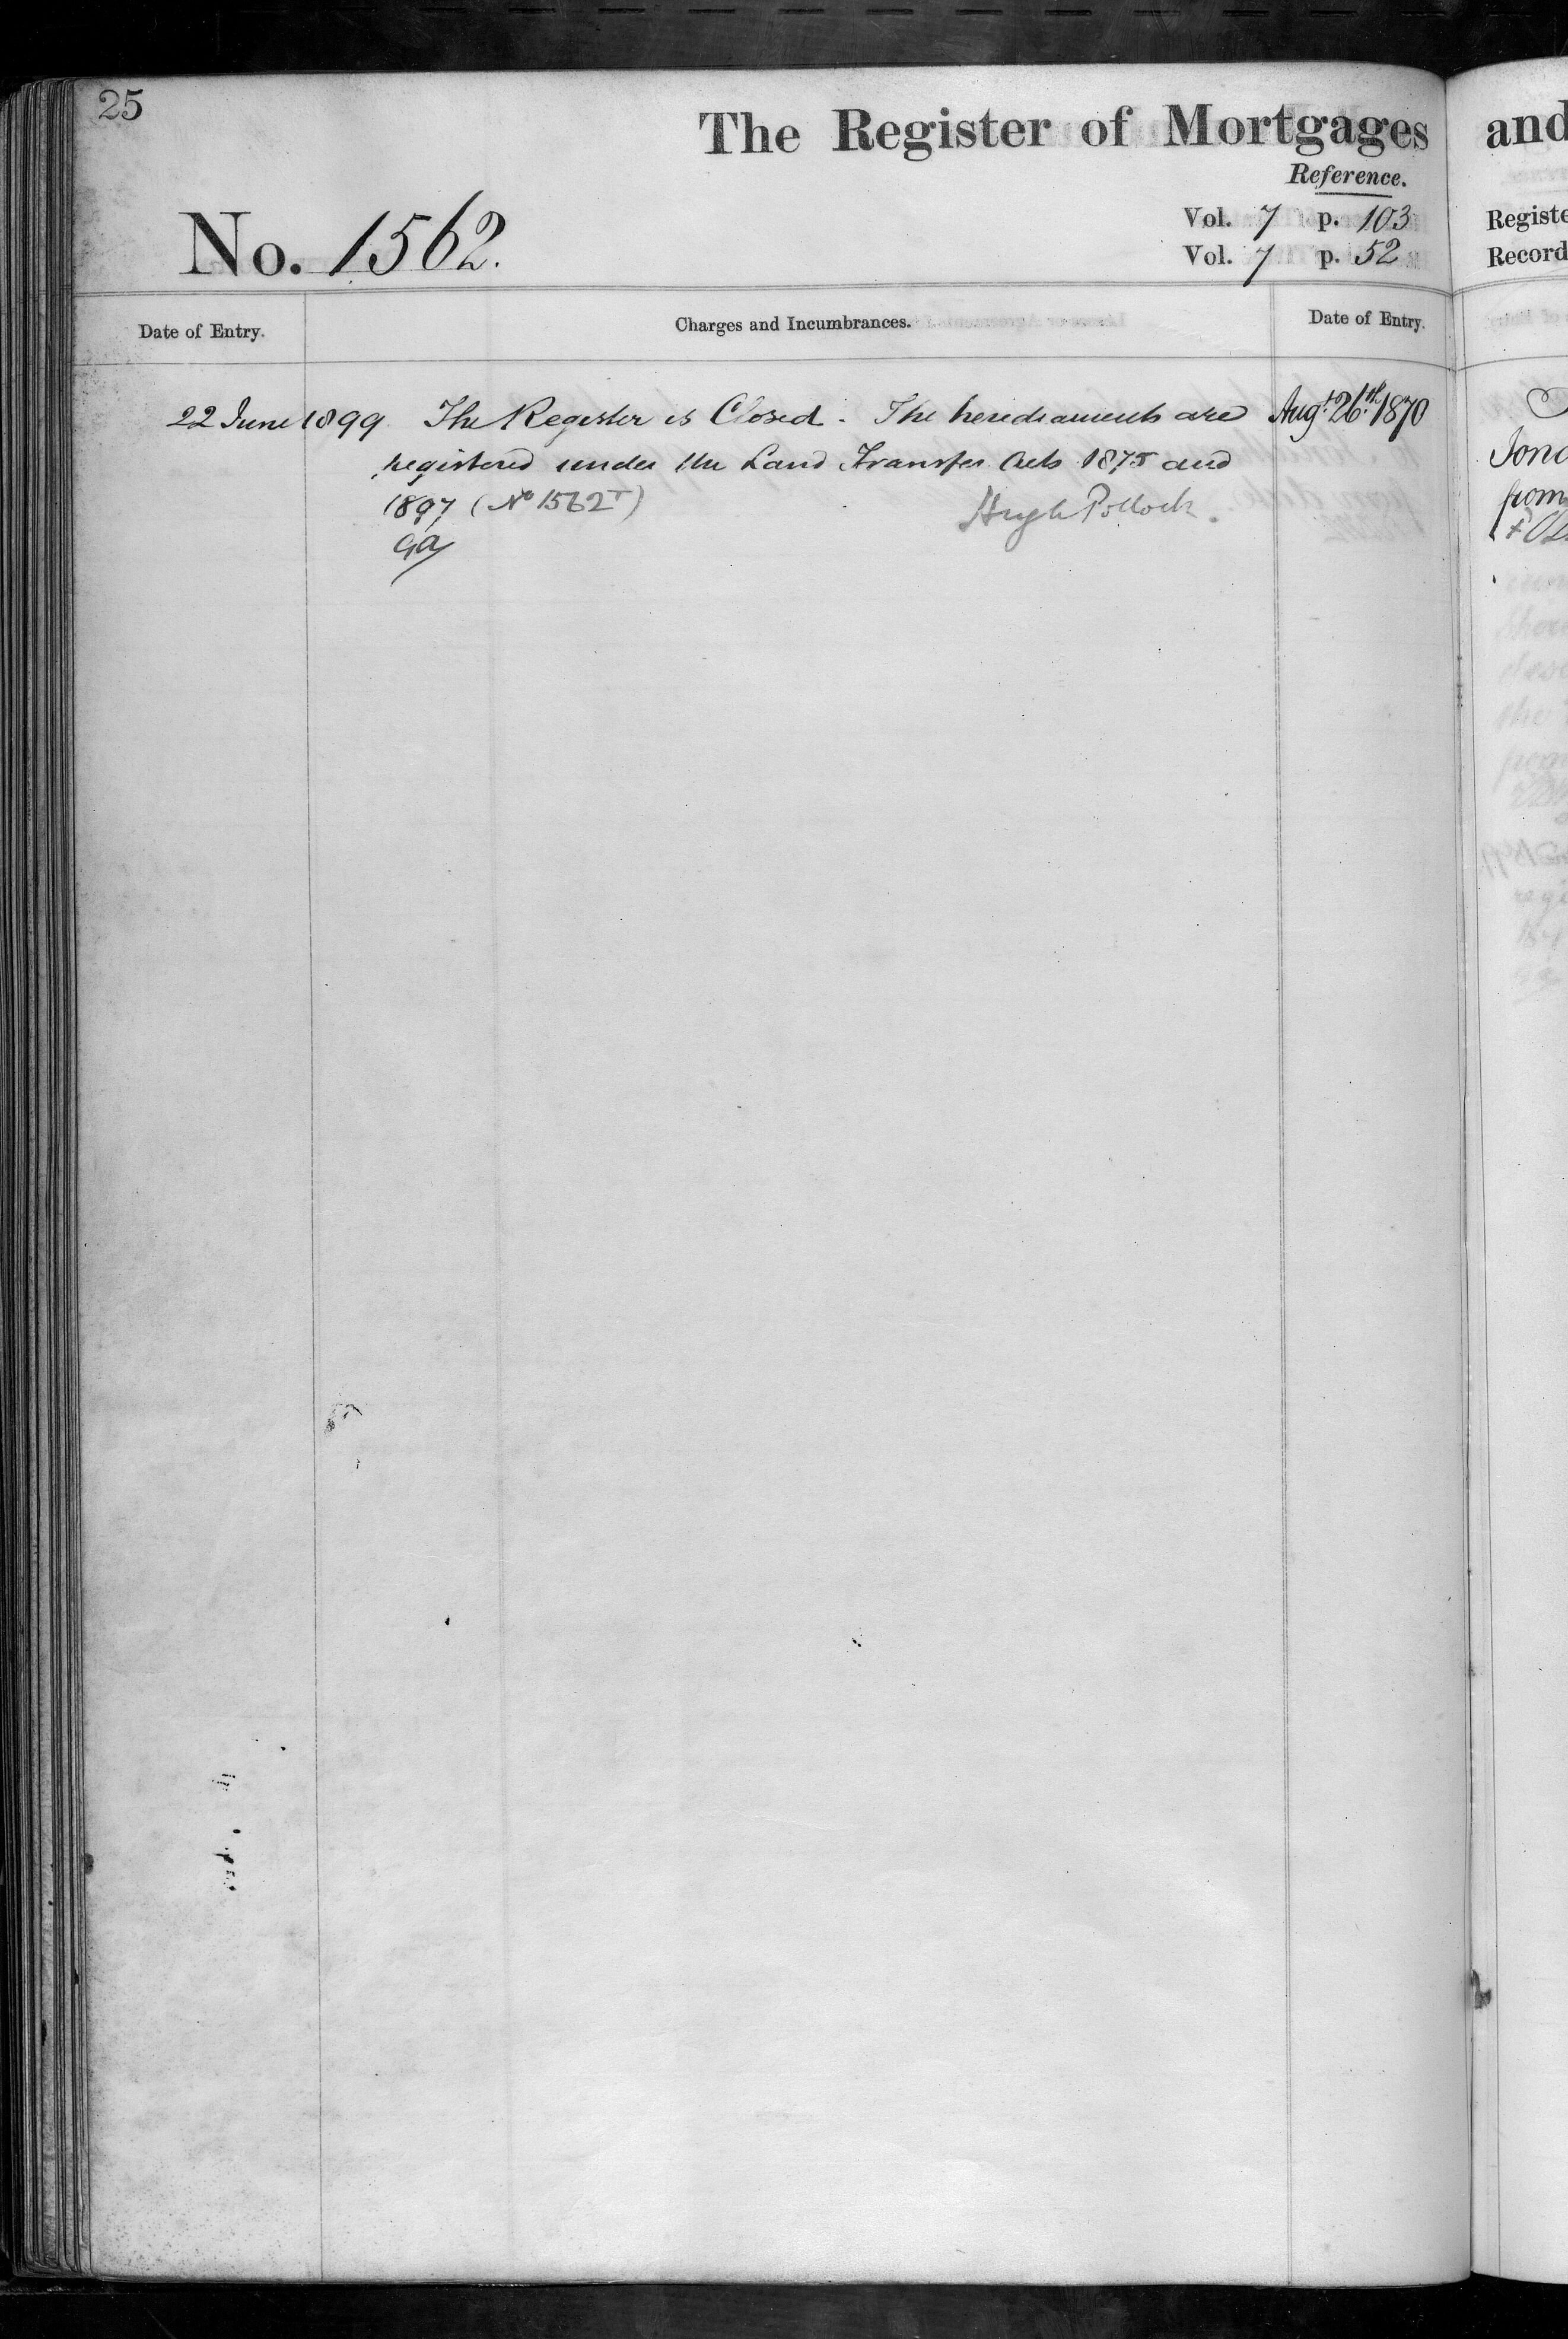 25
The Register of Mortgages and
Reference.
No. 1562.
Vol. 7 p. 103 Registe
Vol. 7 p. 52 Record
Date of Entry. Charges and Incumbrances. Date of Entry.
22 June 1899 The Register is Closed. The herediaments are Augt. 26th. 1870
registered under the Land Transfer Acts 1875 and
1897 (No 1562T) Hugh Pollock.
from